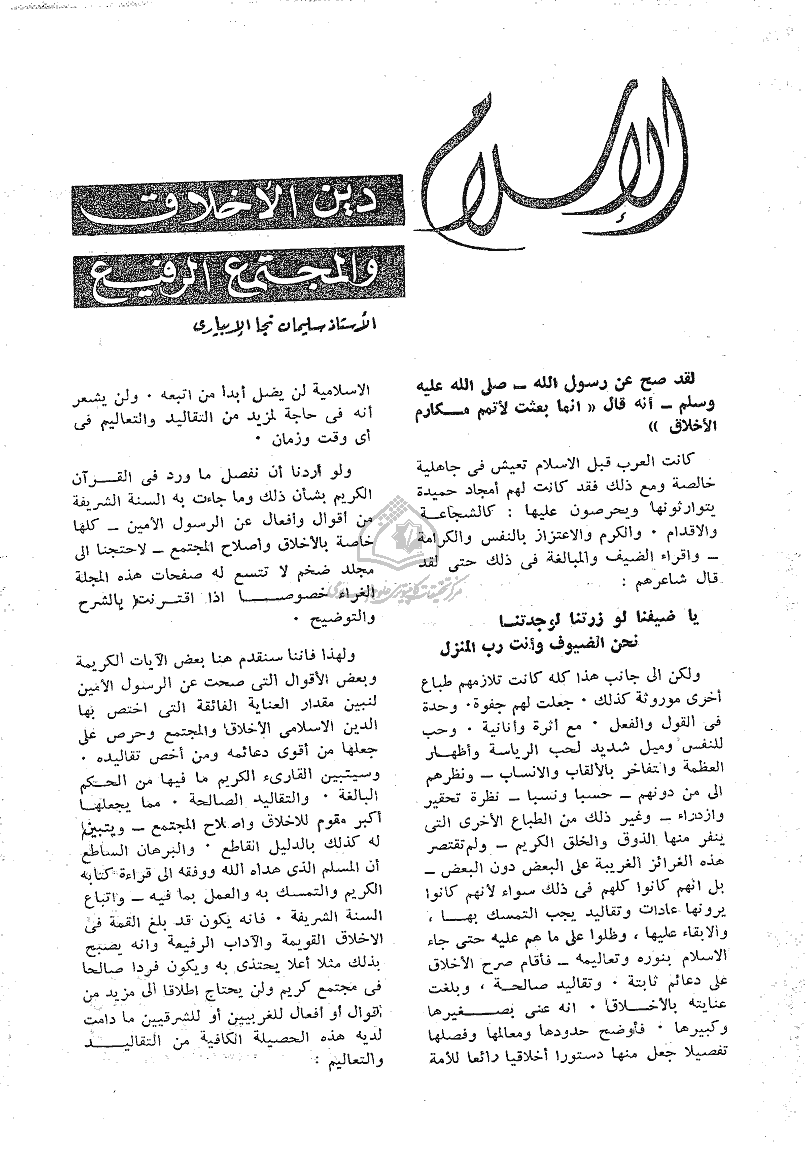 الإسلام
دين الأخلاق
والمجتمع الرفيع
الأستاذ سليمان نجا الإبيارى
لقد صح عن رسول الله ــ صلى الله عليه
وسلم ــ أنه قال « انما بعثت لأتمم مكارم
الأخلاق »
كانت العرب قبل الاسلام تعيش فى جاهلية
خالصة ومع ذلك فقد كانت لهم أمجاد حميدة
يتوارثونها ويحرصون عليها : كالشجاعة
والاقدام ٠ والكرم والاعتزاز بالنفس والكرامة
ــ واقراء الضيف والمبالغة فى ذلك حتى لقد
قال شاعرهم :
يا ضيفنا لو زرتنا لوجدتنا
نحن الضيوف وأنت رب المنزل
ولكن الى جانب هذا كله كانت تلازمهم طباع
أخرى موروثة كذلك ٠ جعلت لهم جفوة ٠ وحدة
فى القول والفعل ٠ مع أثرة وأنانية ٠ وحب
للنفس وميل شديد لحب الرياسة وأظهار
العظمة والتفاخر بالألقاب والانساب ــ ونظرهم
الى من دونهم ــ حسبا ونسبا ــ نظرة تحقير
وازدراء ــ وغير ذلك من الطباع الأخرى التى
ينفر منها الذوق والخلق الكريم ــ ولم تقتصر
هذه الغرائز الغريبة على البعض دون البعض ــ
بل انهم كانوا كلهم فى ذلك سواء لأنهم كانوا
يرونها عادات وتقاليد يجب التمسك بها ،
والابقاء عليها ، وظلوا على ما هم عليه حتى جاء
الاسلام بنوره وتعاليمه ــ فأقام صرح الأخلاق
على دعائم ثابتة ٠ وتقاليد صالحة ، وبلغت
عنايته بالأخلاق ٠ انه عنى بصغيرها
وكبيرها ٠ فأوضح حدودها ومعالمها وفصلها
تفصيلا جعل منها دستورا أخلاقيا رائعا للأمة
الاسلامية لن يضل أبدا من اتبعه ٠ ولن يشعر
أنه فى حاجة لمزيد من التقاليد والتعاليم فى
أى وقت وزمان ٠
ولو أردنا أن نفصل ما ورد فى القرآن
الكريم بشأن ذلك وما جاءت به السنة الشريفة
من أقوال وأفعال عن الرسول الأمين ــ كلها
خاصة بالأخلاق وأصلاح المجتمع ــ لاحتجنا الى
مجلد ضخم لا تتسع له صفحات هذه المجلة
الغراء خصوصا اذا اقترنت بالشرح
والتوضيح ٠
ولهذا فاننا سنقدم هنا بعض الآيات الكريمة
وبعض الأقوال التى صحت عن الرسول الأمين
لنبين مقدار العناية الفائقة التى اختص بها
الدين الاسلامى الأخلاق والمجتمع وحرص على
جعلها من أقوى دعائمه ومن أخص تقاليده ٠
وسيتبين القارىء الكريم ما فيها من الحكم
البالغة ٠ والتقاليد الصالحة ٠ مما يجعلها
أكبر مقوم للاخلاق واصلاح المجتمع ــ ويتبين
له كذلك بالدليل القاطع ٠ والبرهان الساطع
أن المسلم الذى هداه الله ووفقه الى قراءة كتابه
الكريم والتمسك به والعمل بما فيه ــ واتباع
السنة الشريفة ٠ فانه يكون قد بلغ القمة فى
الاخلاق القويمة والآداب الرفيعة وانه يصبح
بذلك مثلا أعلا يحتذى به ويكون فردا صالحا
فى مجتمع كريم ولن يحتاج اطلاقا الى مزيد من
أقوال أو أفعال للغربيين أو للشرقيين ما دامت
لديه هذه الحصيلة الكافية من التقاليد
والتعاليم :